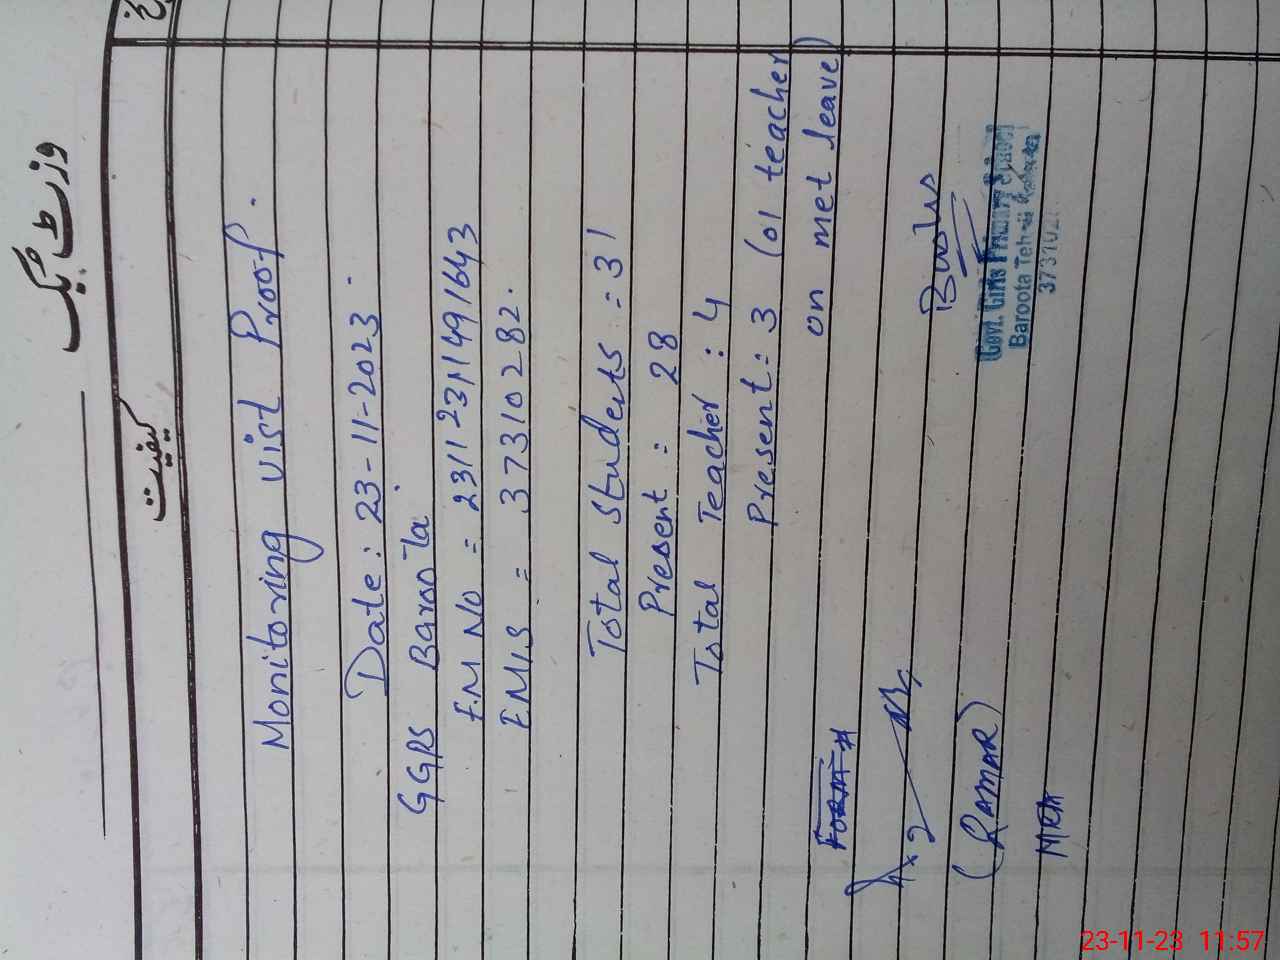 وزٹ بک
کیفیت
Monitoring vist Proof.
Date: 23-11-2023.
GGPS Baroota
F.M NO = 23112311491643
EMIS = 37310282.
Total Students = 31
Present = 28
Total Teacher : 4
Present = 3 (01 teacher
on met leave)
(RAMAR)
Govt. Girls Primary School
Baroota Tehsil
23-11-23 11:57